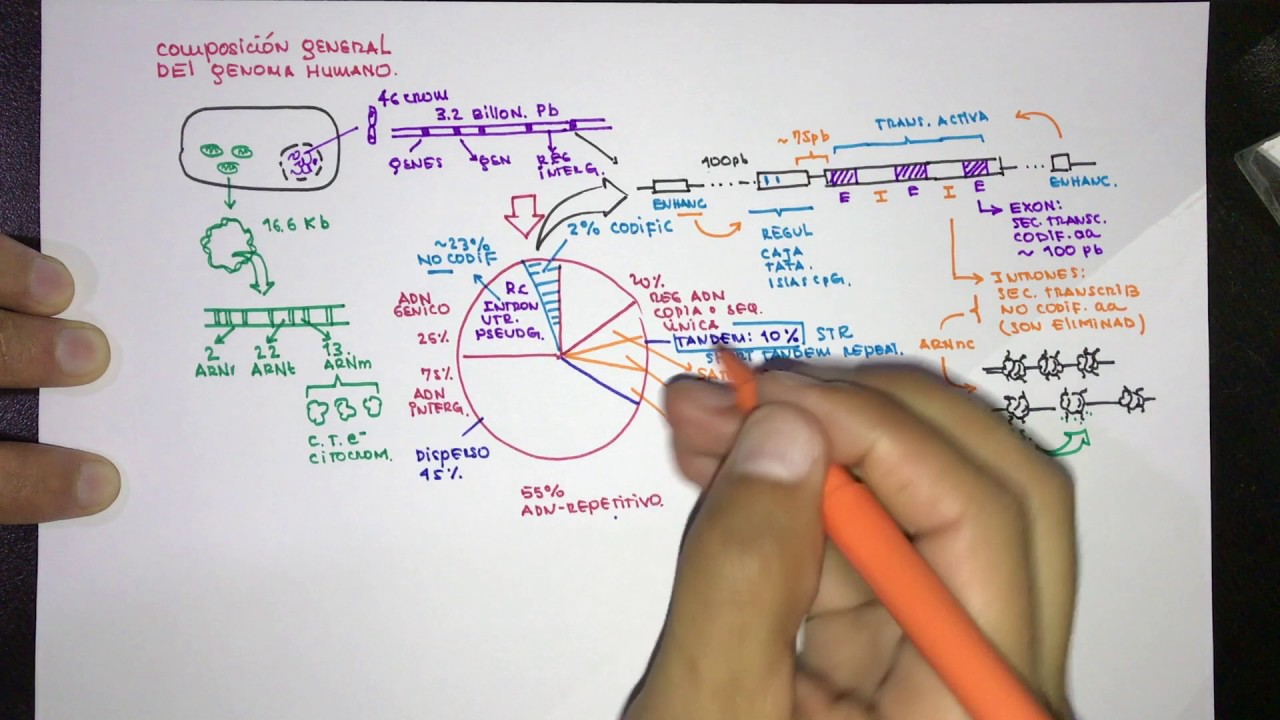 COMPOSICIÓN GENERAL
DEL GENOMA HUMANO.
46 CROM
3.2 BILLON. Pb
GENES
GEN
REG
INTERG.
16.6 Kb
2
ARNr
22
ARNt
13.
ARNm
C.T.e-
CITOCROM.
~23%
NO CODIF
2% CODIFIC
ADN
GENICO
25%
75%
ADN
INTERG.
R.C
INTRON
UTR.
PSEUDG.
DISPERSO
45%
55%
ADN-REPETITIVO.
20%
REG ADN
COPIA O SEQ.
ÚNICA
TANDEM: 10%
STR
SHORT TANDEM REPEAT.
SAT
100pb
ENHANC
~75pb
REGUL
CAJA
TATA.
ISLAS CpG.
TRANS. ACTIVA
E
I
E
I
E
ENHANC.
EXON:
SEC. TRANSC.
CODIF. aa
~ 100 pb
INTRONES:
SEC. TRANSCRIB
NO CODIF. aa
(SON ELIMINAD)
ARNnc